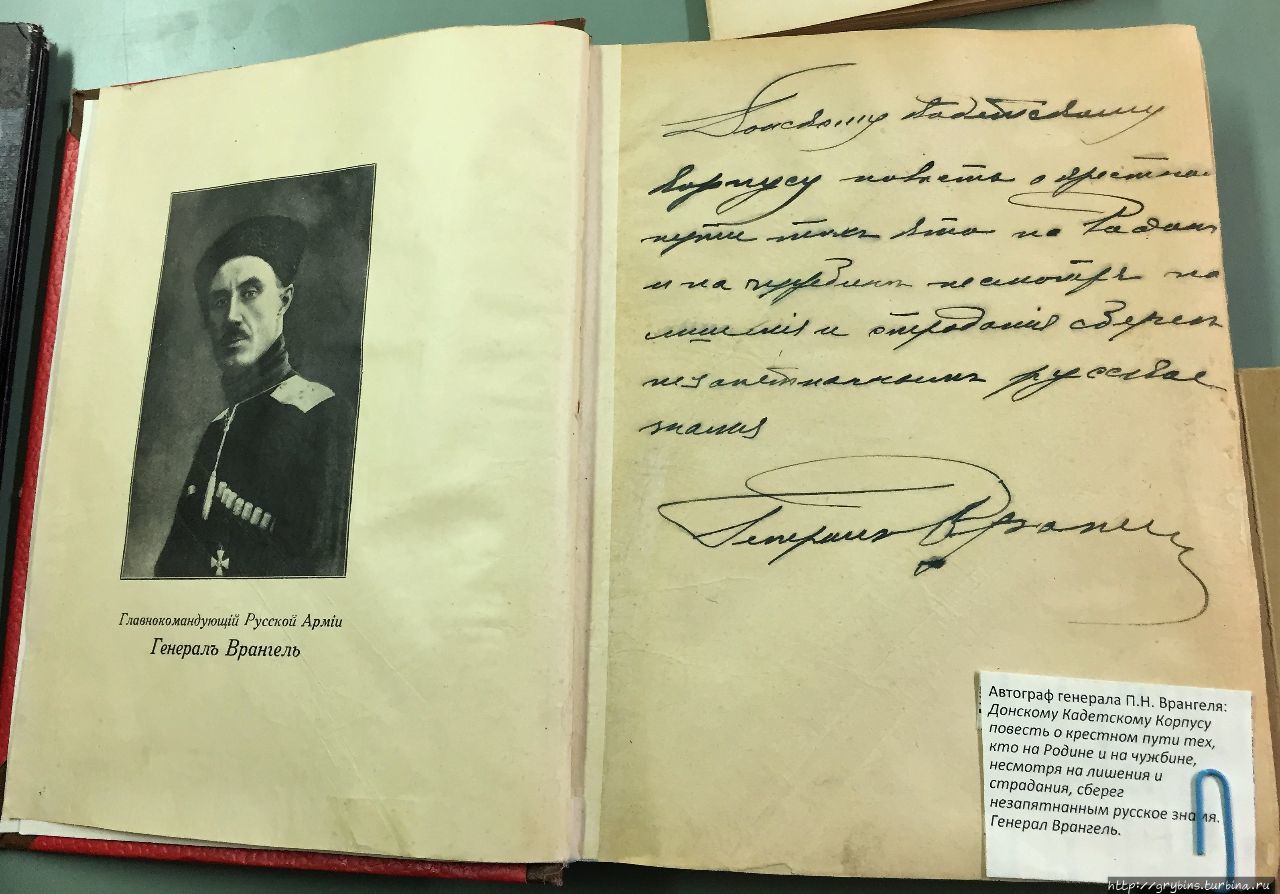 Главнокомандующій Русской Арміи
Генералъ Врангель
Донскому Кадетскому
Корпусу повесть о крестном
пути техъ кто на Родинѣ
и на чужбинѣ несмотря на
лишенія и страданія сберегъ
незапятнаннымъ русское
знамя
Генералъ Врангель
Автограф генерала П.Н. Врангеля:
Донскому Кадетскому Корпусу
повесть о крестном пути тех,
кто на Родине и на чужбине,
несмотря на лишения и
страдания, сберег
незапятнанным русское знамя.
Генерал Врангель.
http://grybins.turbina.ru